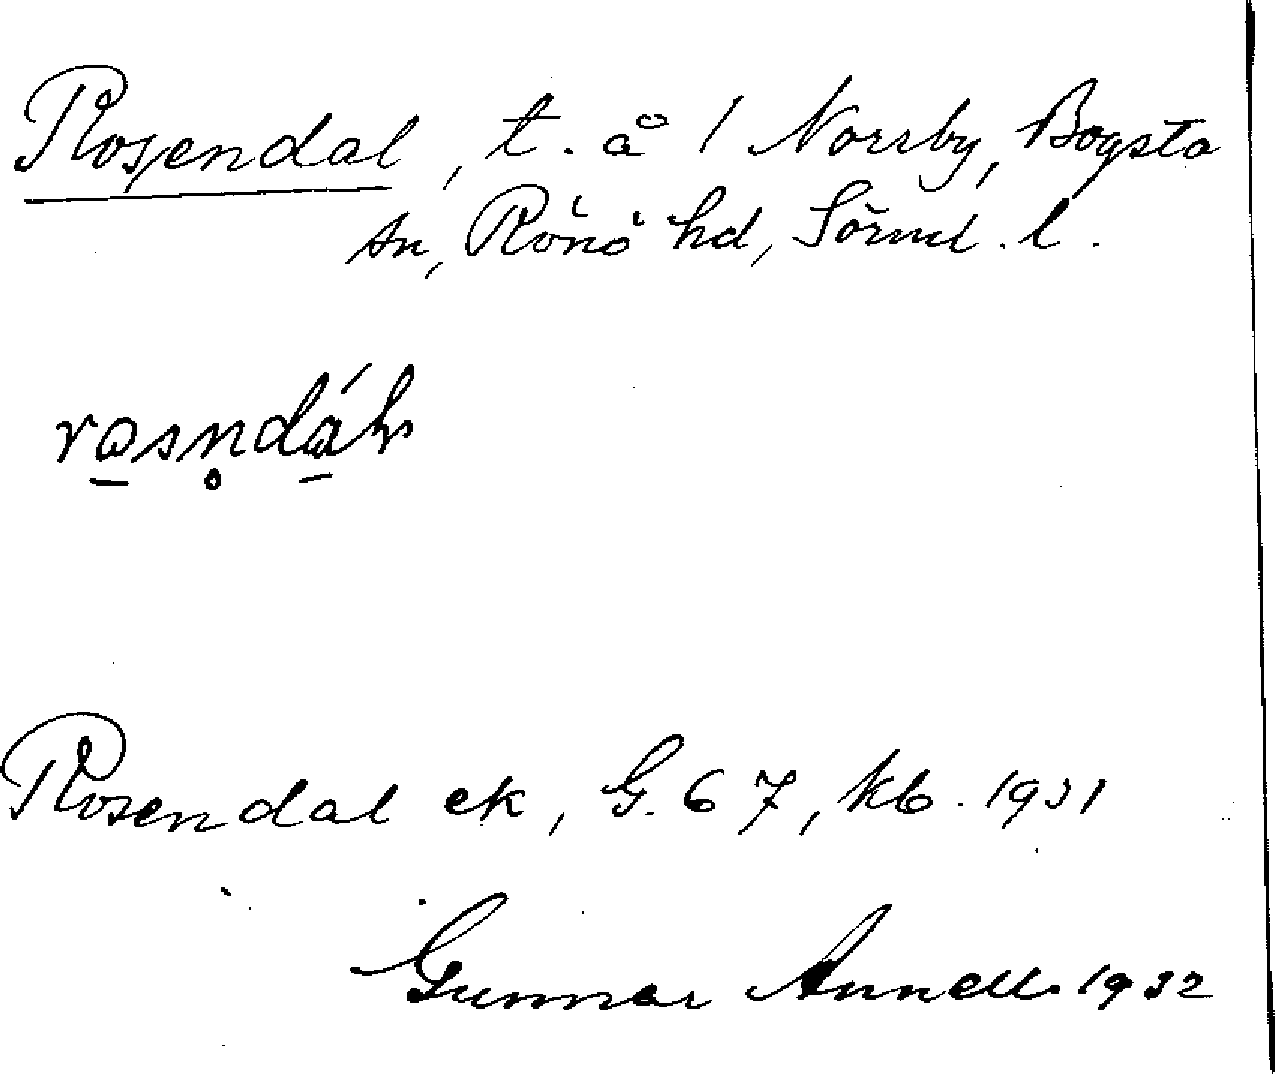 Rosendal, t. å 1 Norrby, Bogsta
sn, Rönö hd, Sörml. l.
Rosendal ek, G. 67, kb. 1931
Gunnar Annell 1932